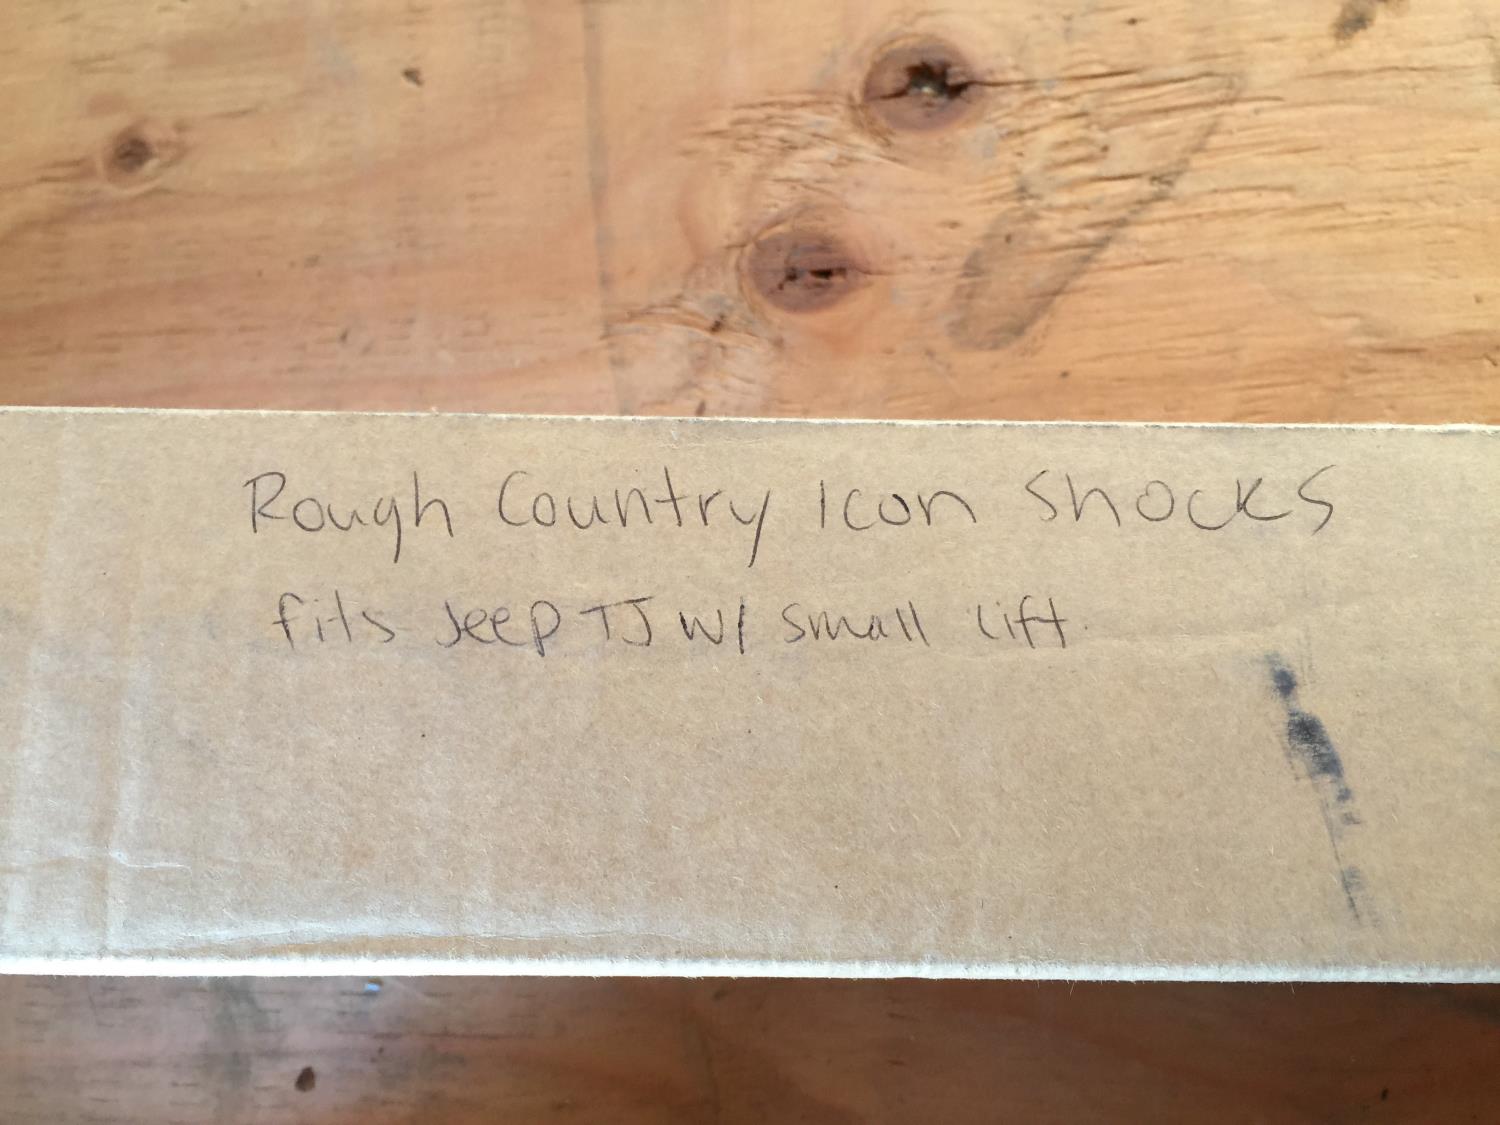 Rough Country Icon Shocks
fits Jeep TJ w/ small lift.